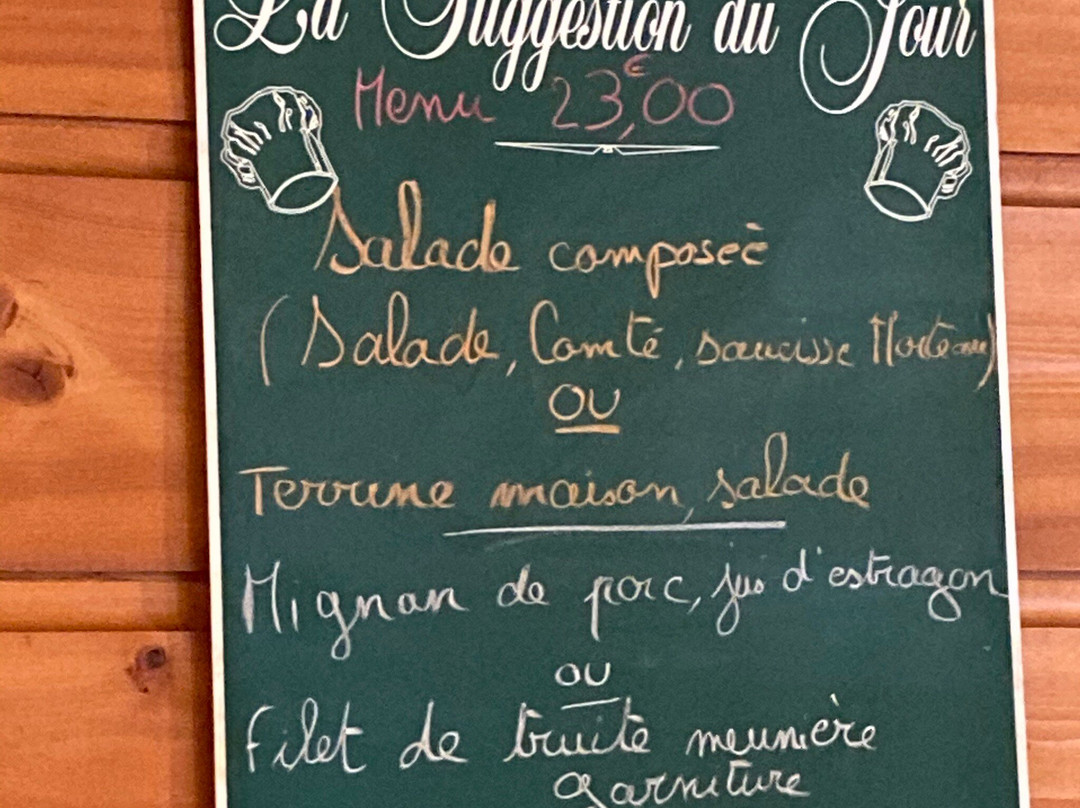 La Suggestion du Jour
Menu 23,€00
Salade composeè
(Salade, Comté, saucisse Morteau)
OU
Terrine maison, salade
Mignon de porc, jus d'estragon
ou
Filet de truite meunière
garniture